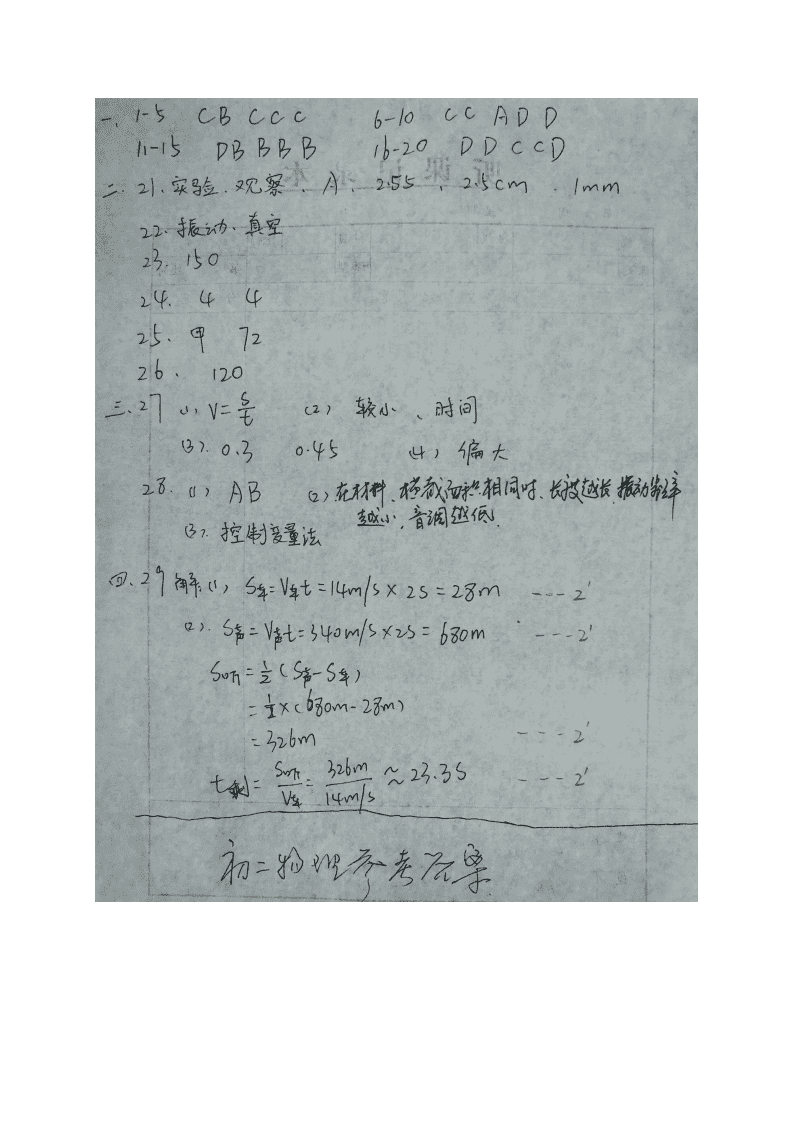 一、1-5 CBCCC 6-10 CCADD
11-15 DBBBB 16-20 DDCCD
二、21.实验、观察、A、2.55、2.5cm、1mm
22.振动、真空
23. 150
24. 4 4
25. 甲 72
26. 120
三、27 (1) V=s/t (2) 较小、时间
(3). 0.3 0.45 (4) 偏大
28. (1) AB (2) 在材料、横截面积相同时、长度越长,振动频率
越小,音调越低.
(3). 控制变量法
四、29 解:(1) S车=V车t=14m/s×2s=28m ---2'
(2). S声=V声t=340m/s×2s=680m ---2'
S=½(S声-S车)
=½×(680m-28m)
=326m ---2'
t剩=S/V车=326m/14m/s≈23.3s ---2'
初二物理参考答案
听课记录本